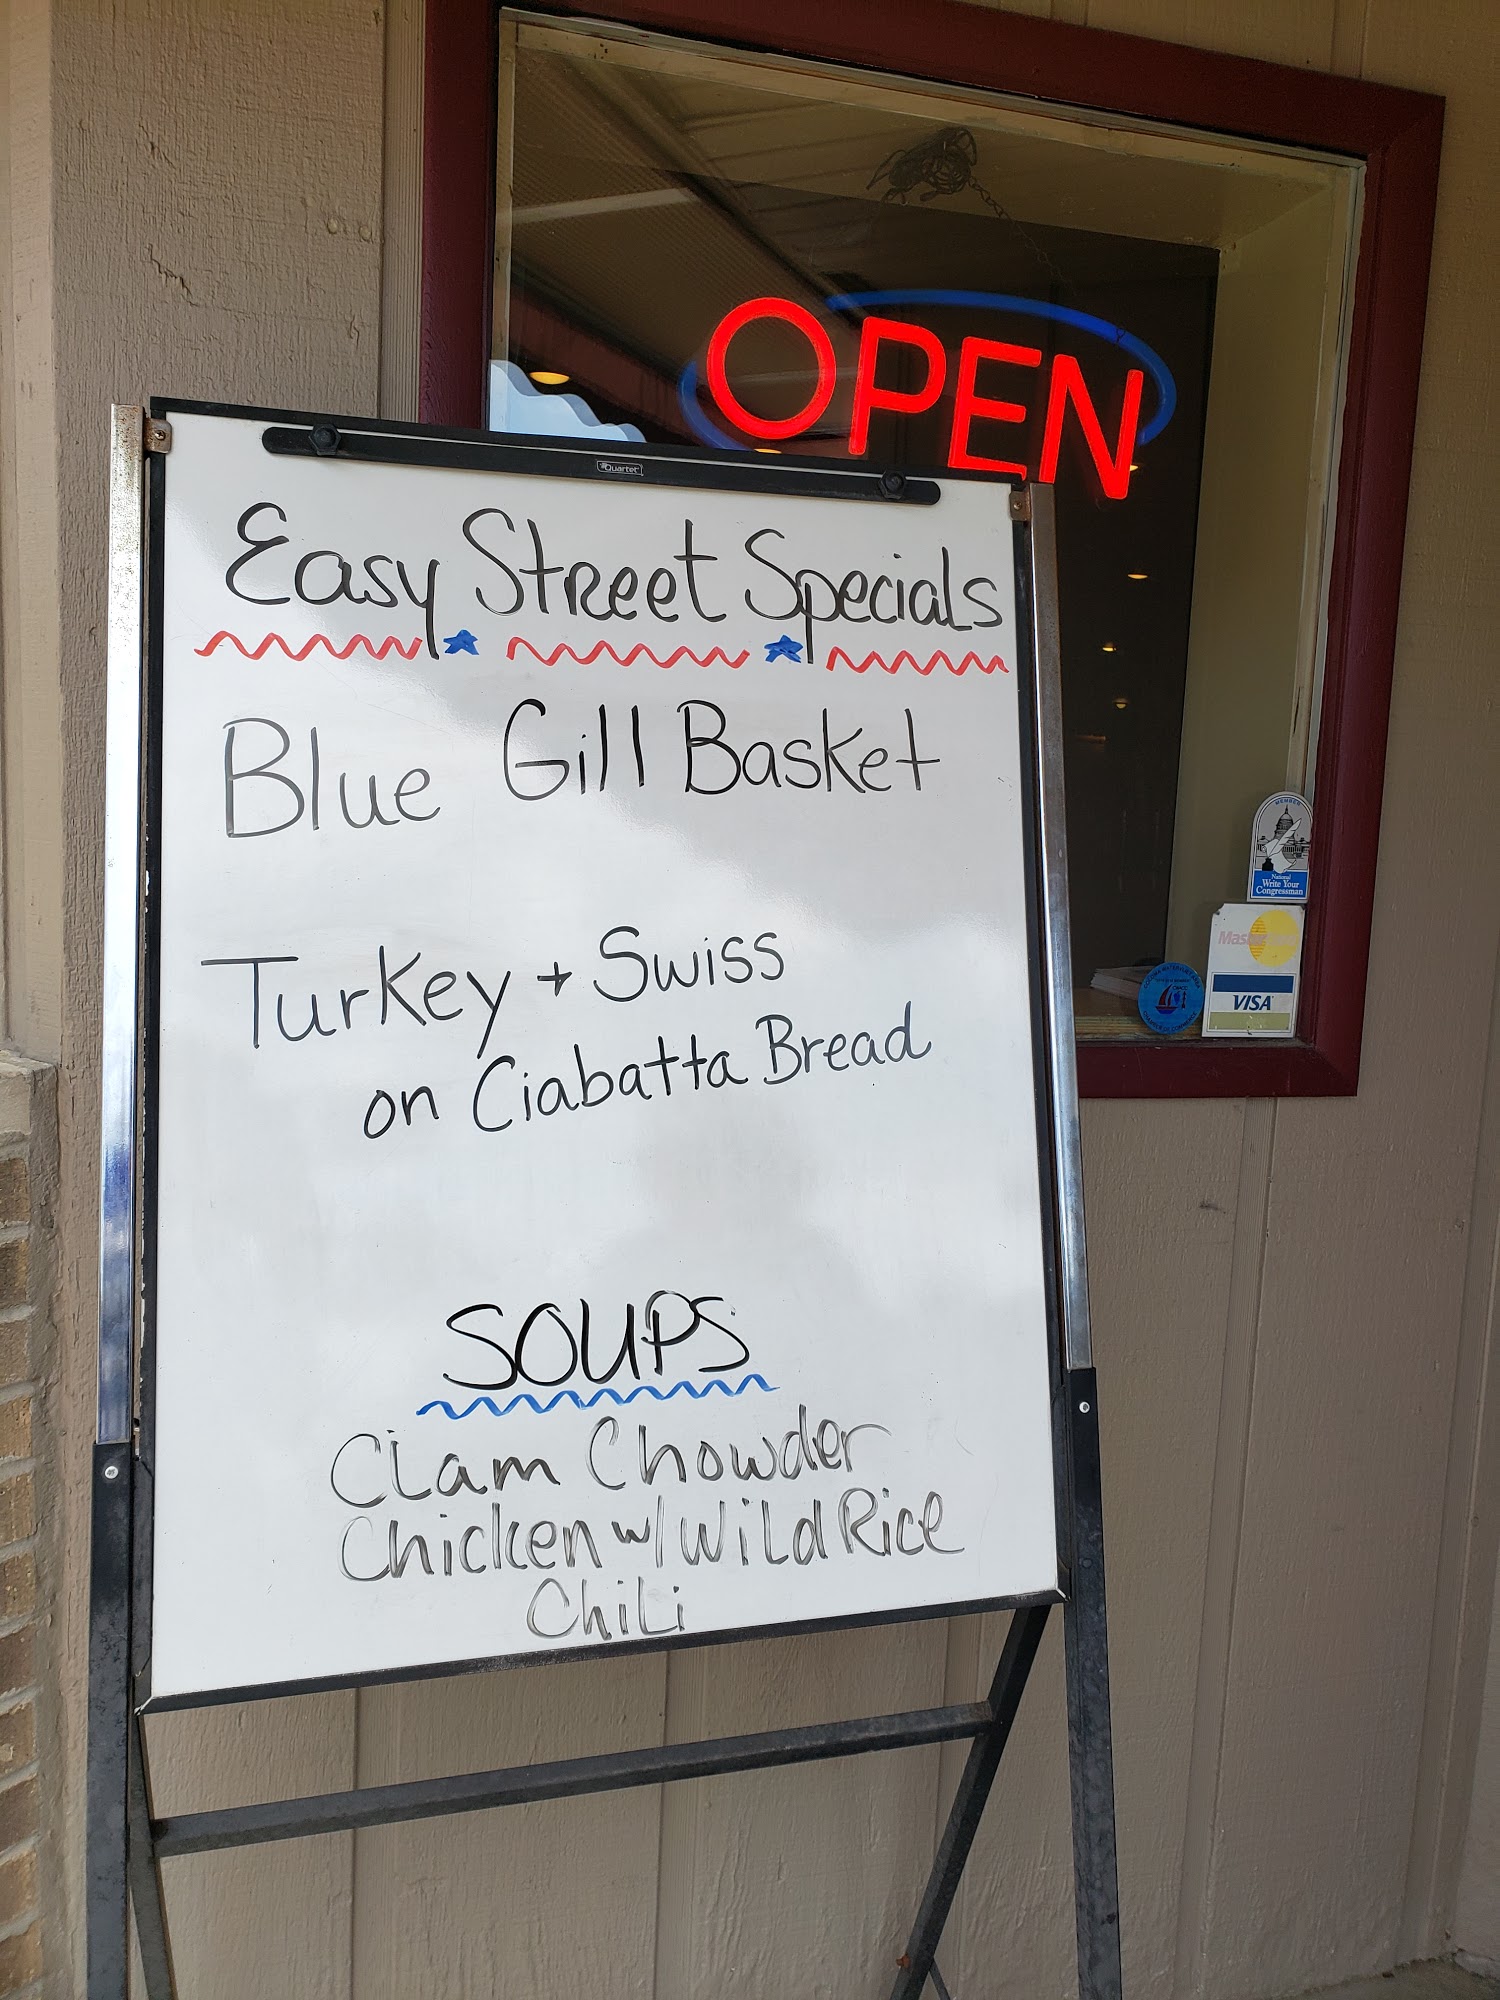 OPEN
Quartet
Easy Street Specials
Blue Gill Basket
Turkey + Swiss
on Ciabatta Bread
SOUPS
Clam Chowder
Chicken w/ Wild Rice
Chili
MEMBER
National
Write Your
Congressman
MasterCard
VISA